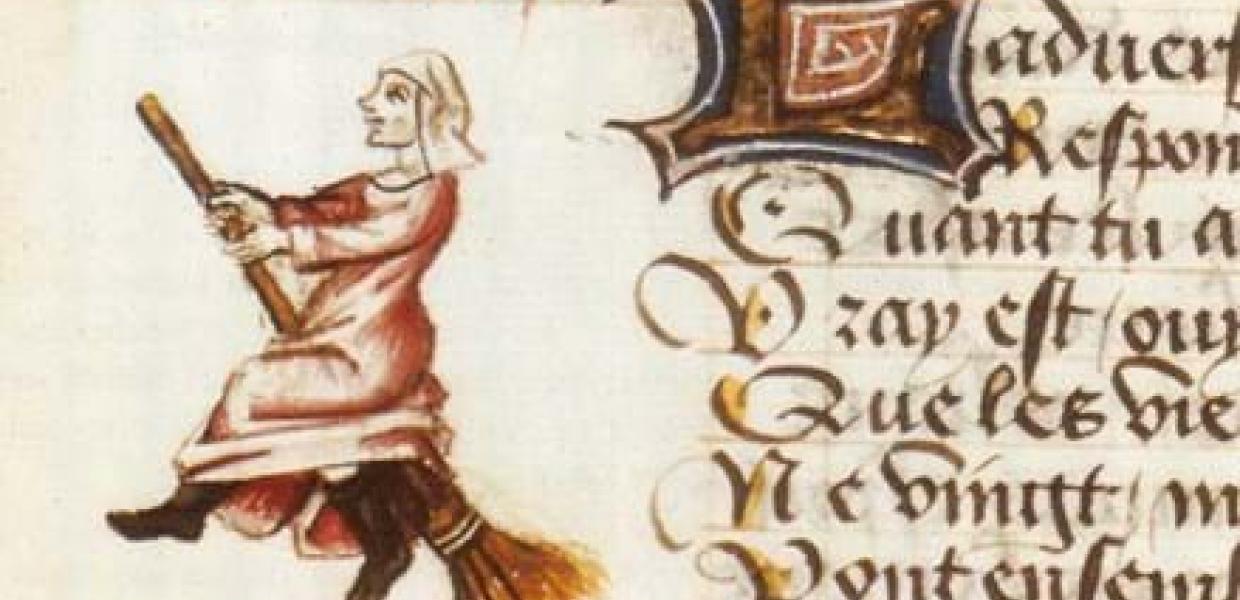 Ladvers
Respon
Quant tu a
Vray est / ouy
Que les vie
Ne vingt / m
Vont ensem